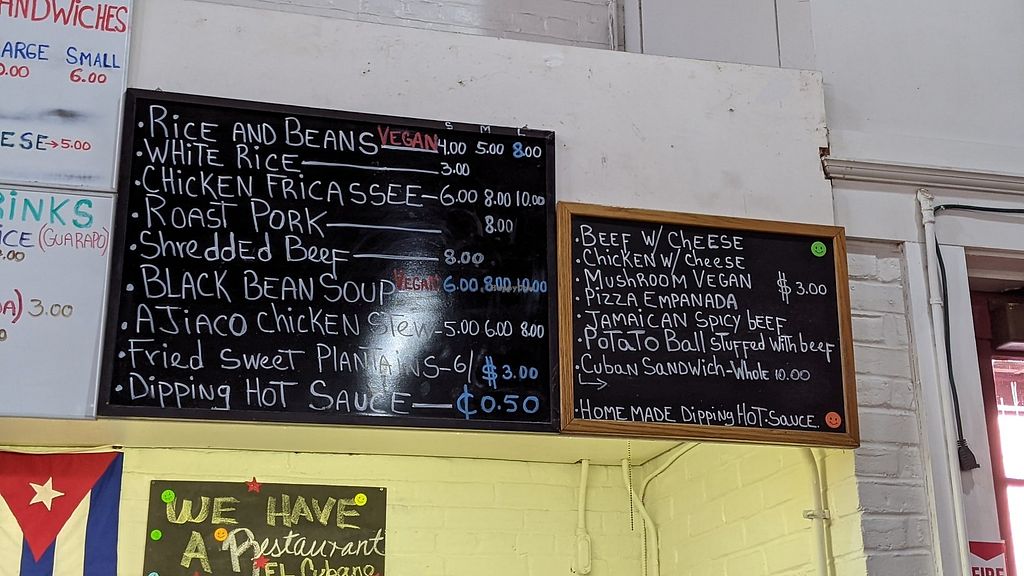 ANDWICHES
ARGE SMALL
0.00 6.00
ESE→5.00
RINKS
ICE (GUARAPO)
.00
A) 3.00
S M L
• RICE AND BEANS VEGAN 4.00 5.00 8.00
• WHITE RICE 3.00
• CHICKEN FRICASSEE - 6.00 8.00 10.00
• ROAST PORK 8.00
• Shredded Beef 8.00
• BLACK BEAN SOUP VEGAN 6.00 8.00 10.00
• AJIACO CHICKEN STEW - 5.00 6.00 8.00
• Fried Sweet PLANTAINS - 6/ $3.00
• Dipping Hot SAUCE ¢0.50
• BEEF W/ CHEESE
• CHICKEN W/ cheese
• MUSHROOM VEGAN $3.00
• PIZZA EMPANADA
• JAMAICAN SPICY bEEF
• POTATO Ball stuffed with beef
• CUBAN SANDWICH - Whole 10.00
• HOMEMADE Dipping HOT. SAUCE
WE HAVE
A Restaurant
EL Cubano
FIRE